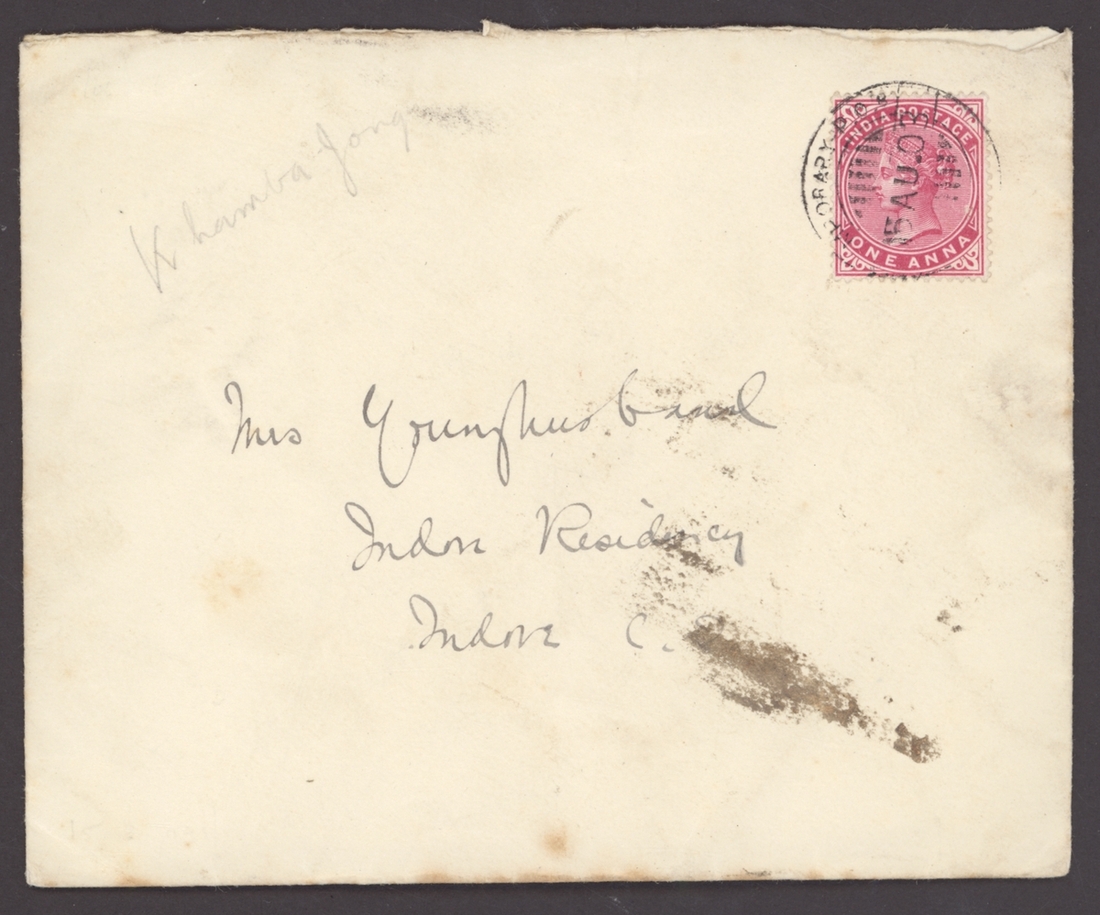 Khamba Jong
INDIA POSTAGE
15 AU 0
ONE ANNA
Mrs Younghusband
Indore Residency
Indore C.